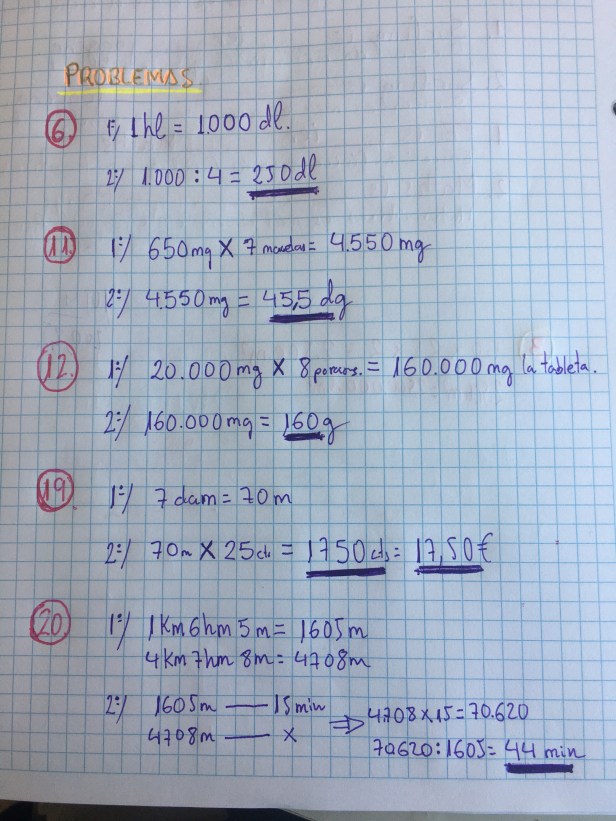 PROBLEMAS
6. 1º/ 1hl = 1.000 dl.
2º/ 1.000 : 4 = 250 dl
11. 1º/ 650mg X 7 monedas = 4.550 mg
2º/ 4.550mg = 45,5 dg
12. 1º/ 20.000mg x 8 porcions. = 160.000mg la tableta.
2º/ 160.000mg = 160g
19. 1º/ 7 dam = 70 m
2º/ 70m X 25cts = 1750 cts = 17,50€
20. 1º/ 1Km 6hm 5m = 1.605m
4Km 7hm 8m = 4708m
2º/ 1605m — 15min
4708m — x
⇒ 4708 x 15 = 70.620
70620 : 1605 = 44 min